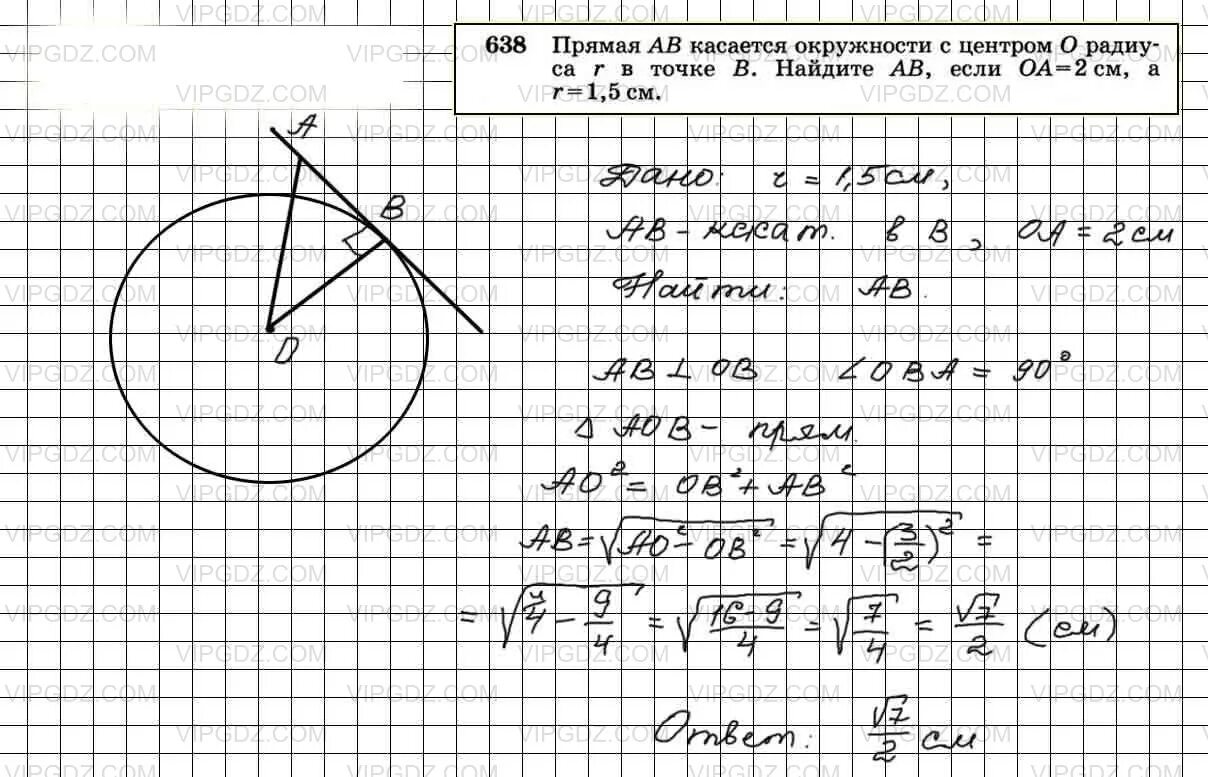 638 Прямая AB касается окружности с центром O радиу-
са r в точке B. Найдите AB, если OA=2 см, а
r=1,5 см.
A
B
D
Дано: r = 1,5 см,
AB - каcат. в B, OA = 2 см
Найти: AB.
AB ⊥ OB ∠OBA = 90°
△ AOB - прям.
AO² = OB² + AB²
AB = √(AO² - OB²) = √(4 - (3/2)²) =
= √(4/4 - 9/4) = √((16-9)/4) = √(7/4) = √7/2 (см)
Ответ: √7/2 см
VIPGDZ.COM